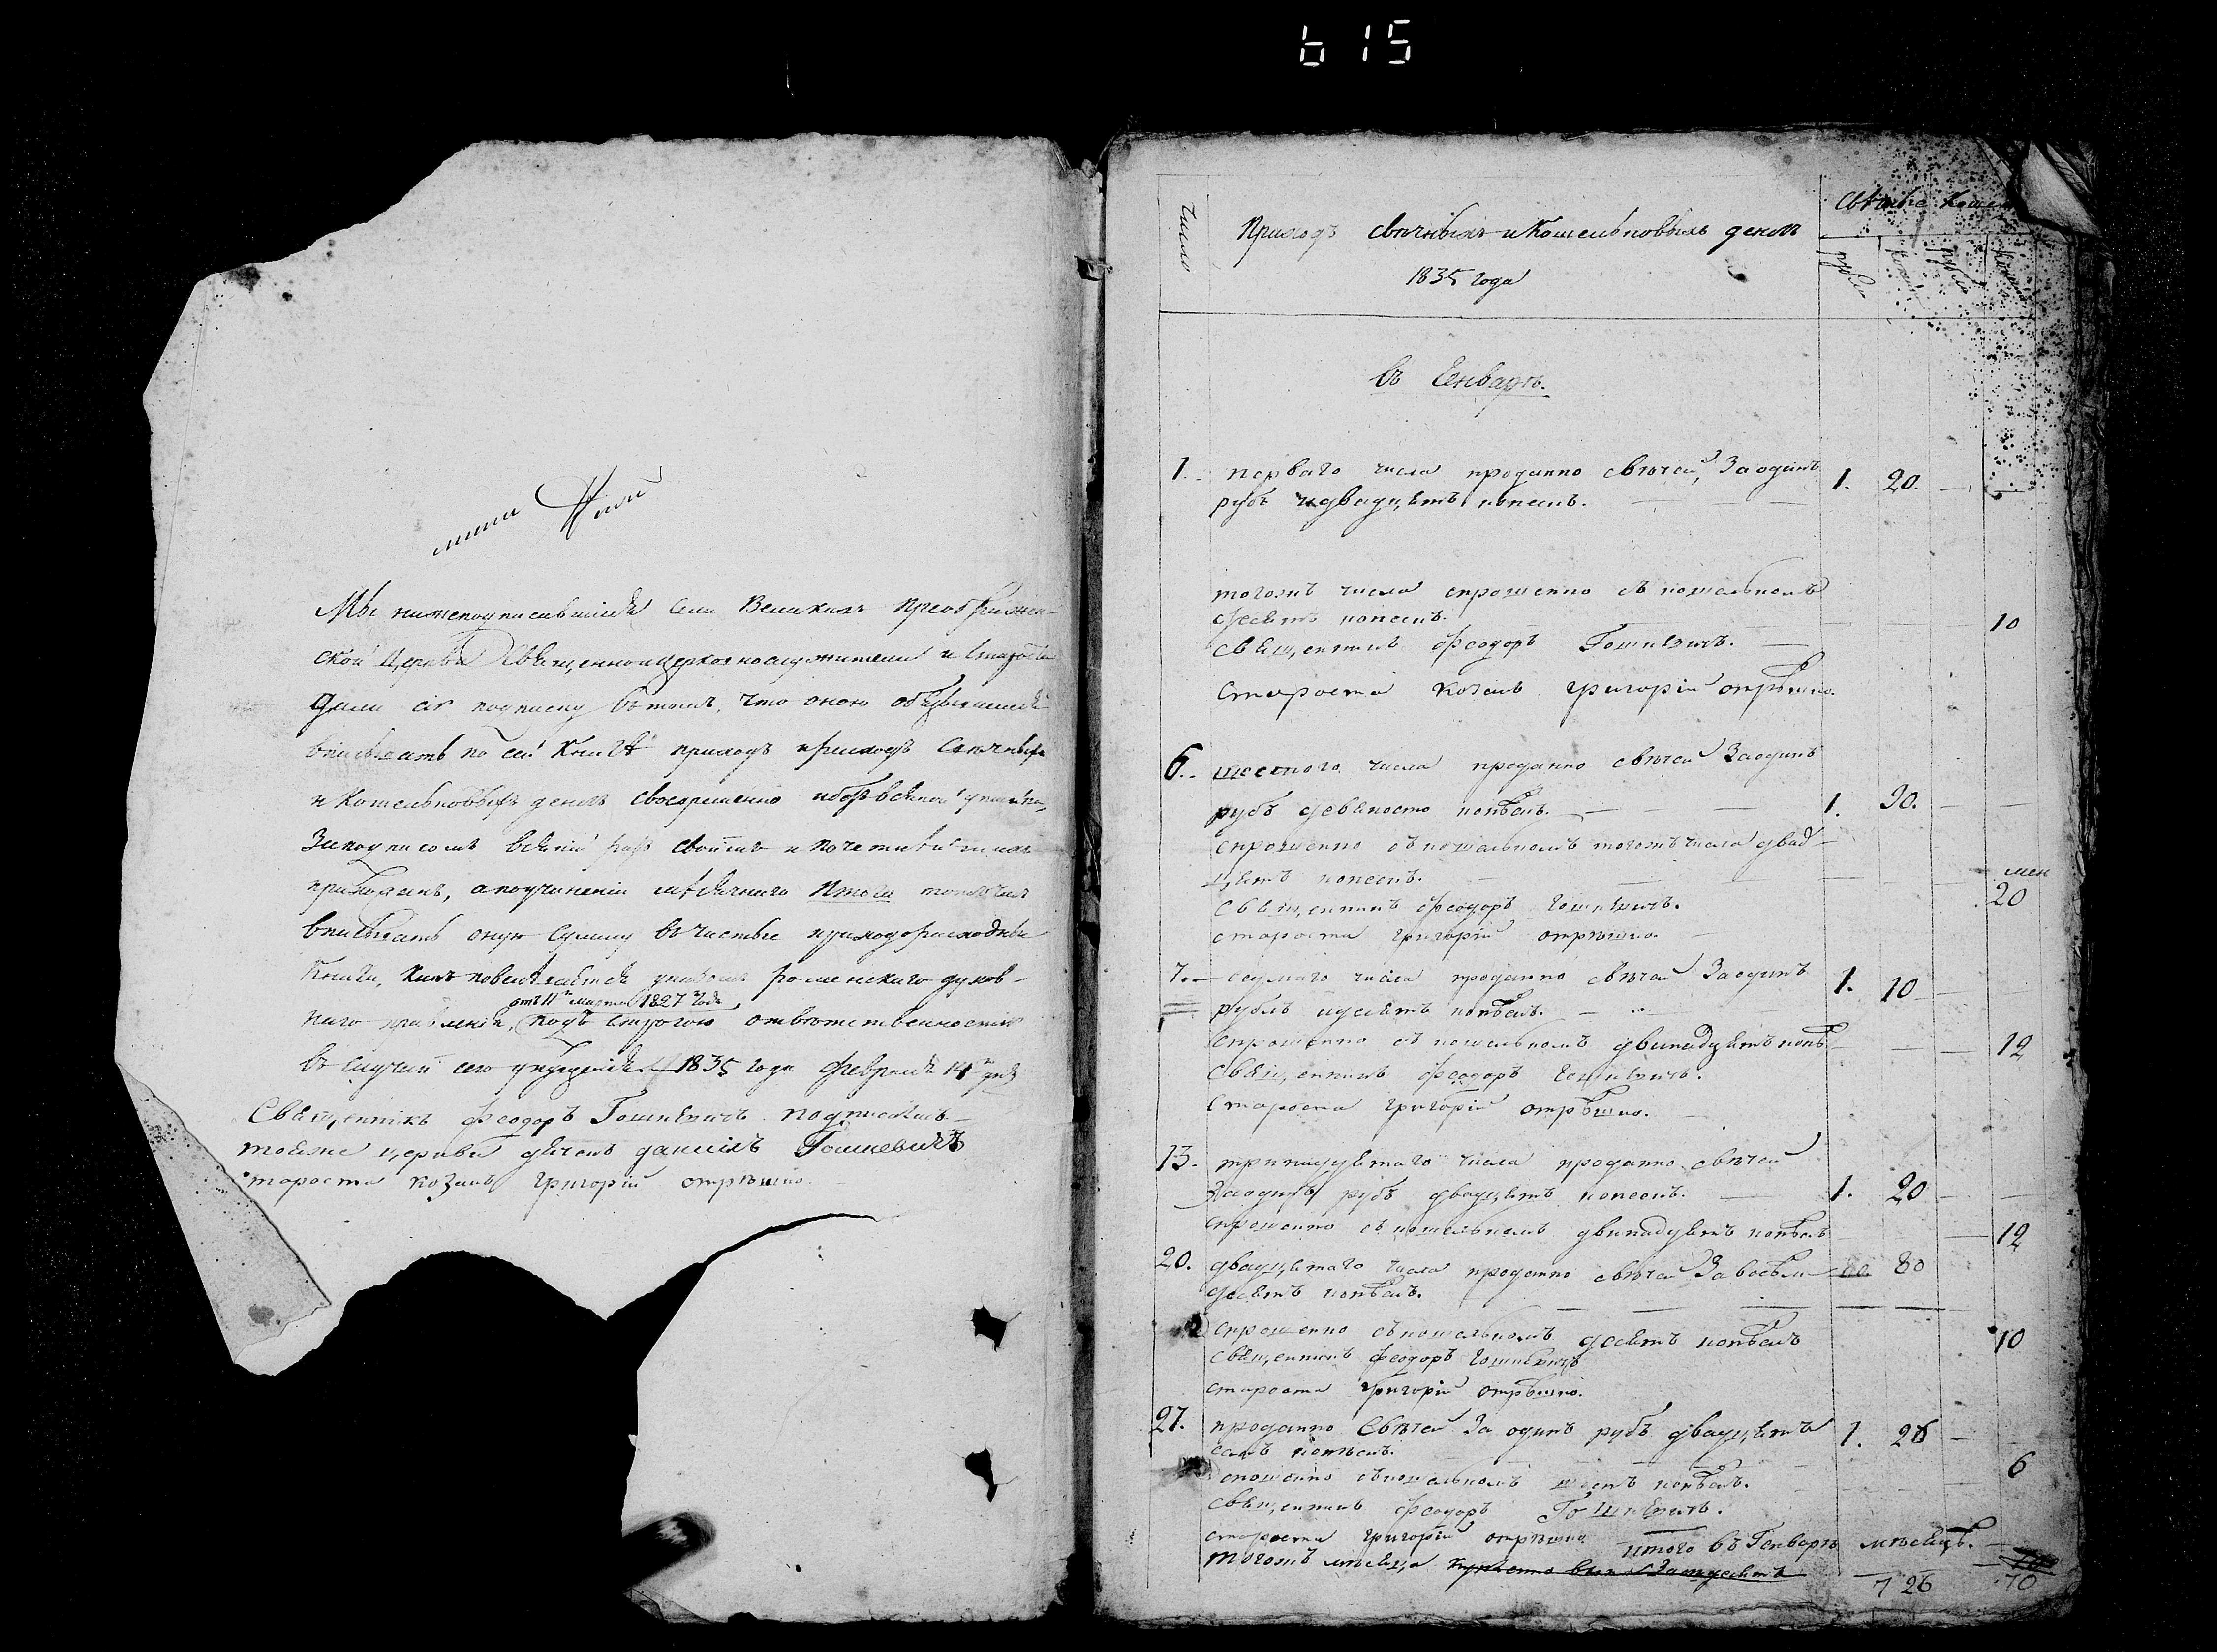 615
Мы нижеподписавшіеся села Великихъ Преображен-
ской Церкви Священноицерковнослужители и Староста
Дали сію подписку въ томъ, что оною обязываемся
вписывать по сей Книгѣ приходъ и расходъ Свѣчныхъ
и Кошельковыхъ денегъ своевременно и безъ всякой утайки,
За подписомъ всякій разъ своимъ и почетнѣйшихъ
прихожанъ, а по учиненіи мѣсячнаго Итога
вписывать оную Сумму въ чистые приходорасходные
Книги, какъ повелѣваетъ указомъ роменскаго духов-
отъ 11го марта 1827 года
наго правленія, подъ строгою отвѣтственностію
въ случаи сего 1835 года февраля 14го дня
Священникъ феодоръ Гошкевичъ подписалъ
тояже церкви дячекъ даніилъ Гошкевичъ
староста козакъ григорій отрѣшко
число
Приходъ свѣчныхъ и Кошельковыхъ денегъ
1835 года
Свѣчные
рубли рубли
въ Генварѣ.
1. перваго числа проданно свѣчей, За одинъ
рубъ и двадцять копеекъ. 1. 20.
тогожъ числа спрошенно съ кошелькомъ
десять копеекъ. 10
священникъ феодоръ Гошкевичъ.
староста козакъ григорій отрѣшко.
6. шестого числа проданно свѣчей За одинъ
рубъ девяносто копѣекъ. 1. 90.
спрошенно съ кошелькомъ тогожъ числа двад-
цять копеекъ. 20
священникъ феодоръ гошкевичъ.
староста григорій отрѣшко.
7. седмаго числа проданно свѣчей За одинъ
рубль и десять копѣекъ. 1. 10
спрошенно съ кошелькомъ двинадцять копѣ 12
священникъ феодоръ гошкевичъ.
староста григорій отрѣшко.
13. тринадцятаго числа проданно свѣчей
За одинъ рубъ двадцять копеекъ. 1. 20
спрошенно съ кошелькомъ двинадцять копѣекъ 12
20. двадцятаго числа проданно свѣчей За восѣм- 80
десятъ копѣекъ.
спрошенно съ кошелькомъ десять копѣекъ 10
священникъ феодоръ гошкевичъ
староста григорій отрѣшко.
27. проданно Свѣчей За одинъ рубъ двадцять 1. 26
копѣекъ.
спрошенно съ кошелькомъ шесть копѣекъ. 6
священникъ феодоръ Гошкевичъ.
староста григорій отрѣшко итого въ Генварѣ мѣсяцѣ.
тогожъ мѣсяца 7 26 70